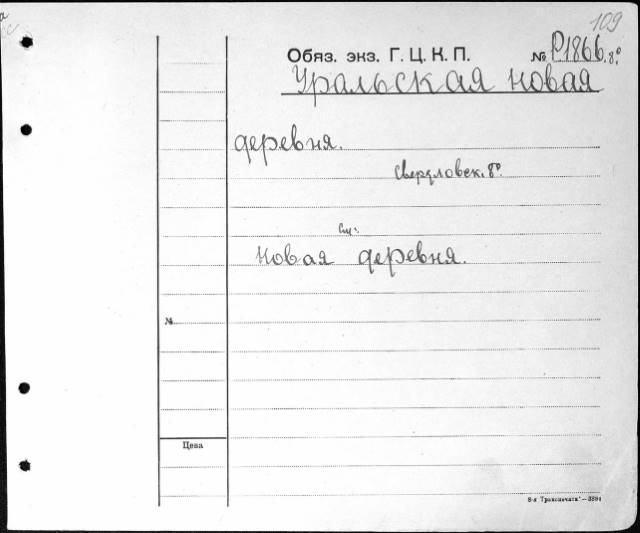 109
Обяз. экз. Г. Ц. К. П. № Р1866.8º
Уральская новая
деревня.
Свердловск. 8º.
См:
Новая деревня.
№
Цена
8-я Транспечати—3894